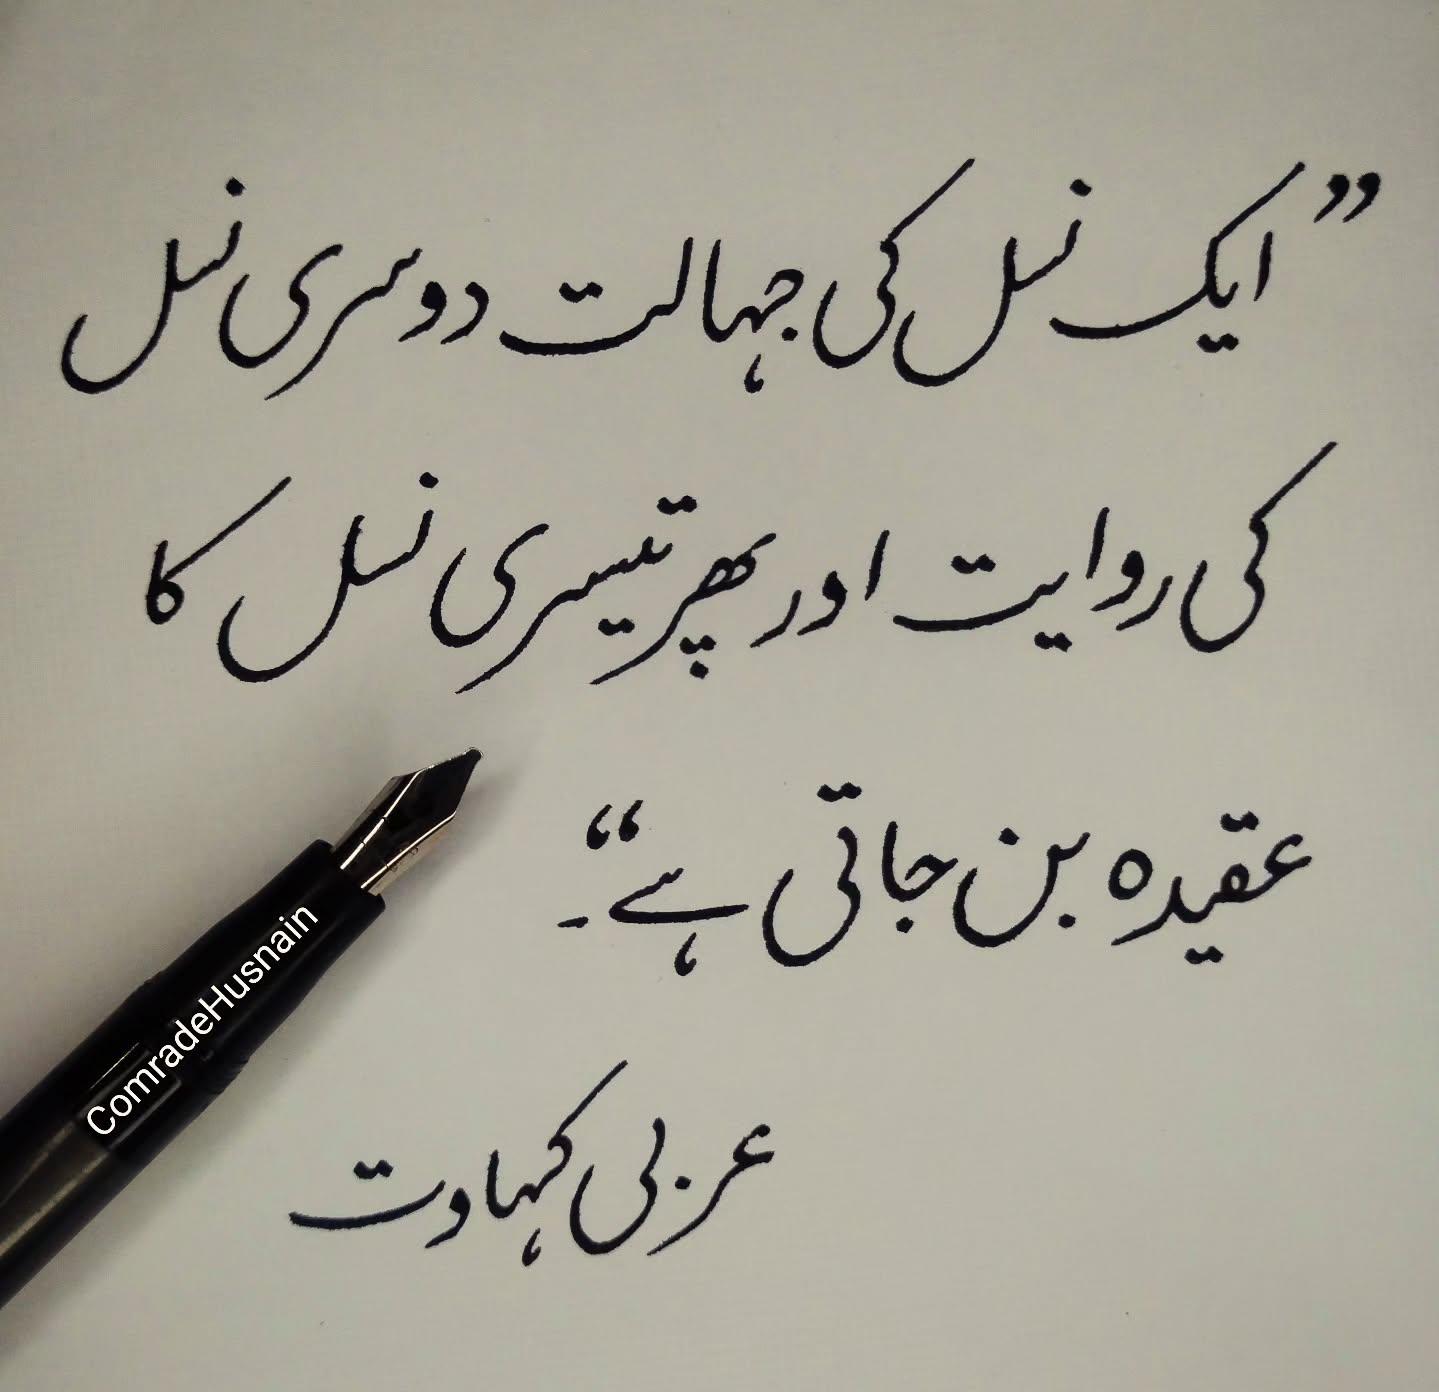 ”ایک نسل کی جہالت دوسری نسل
کی روایت اور پھر تیسری نسل کا
عقیدہ بن جاتی ہے“۔
عربی کہاوت
ComradeHusnain